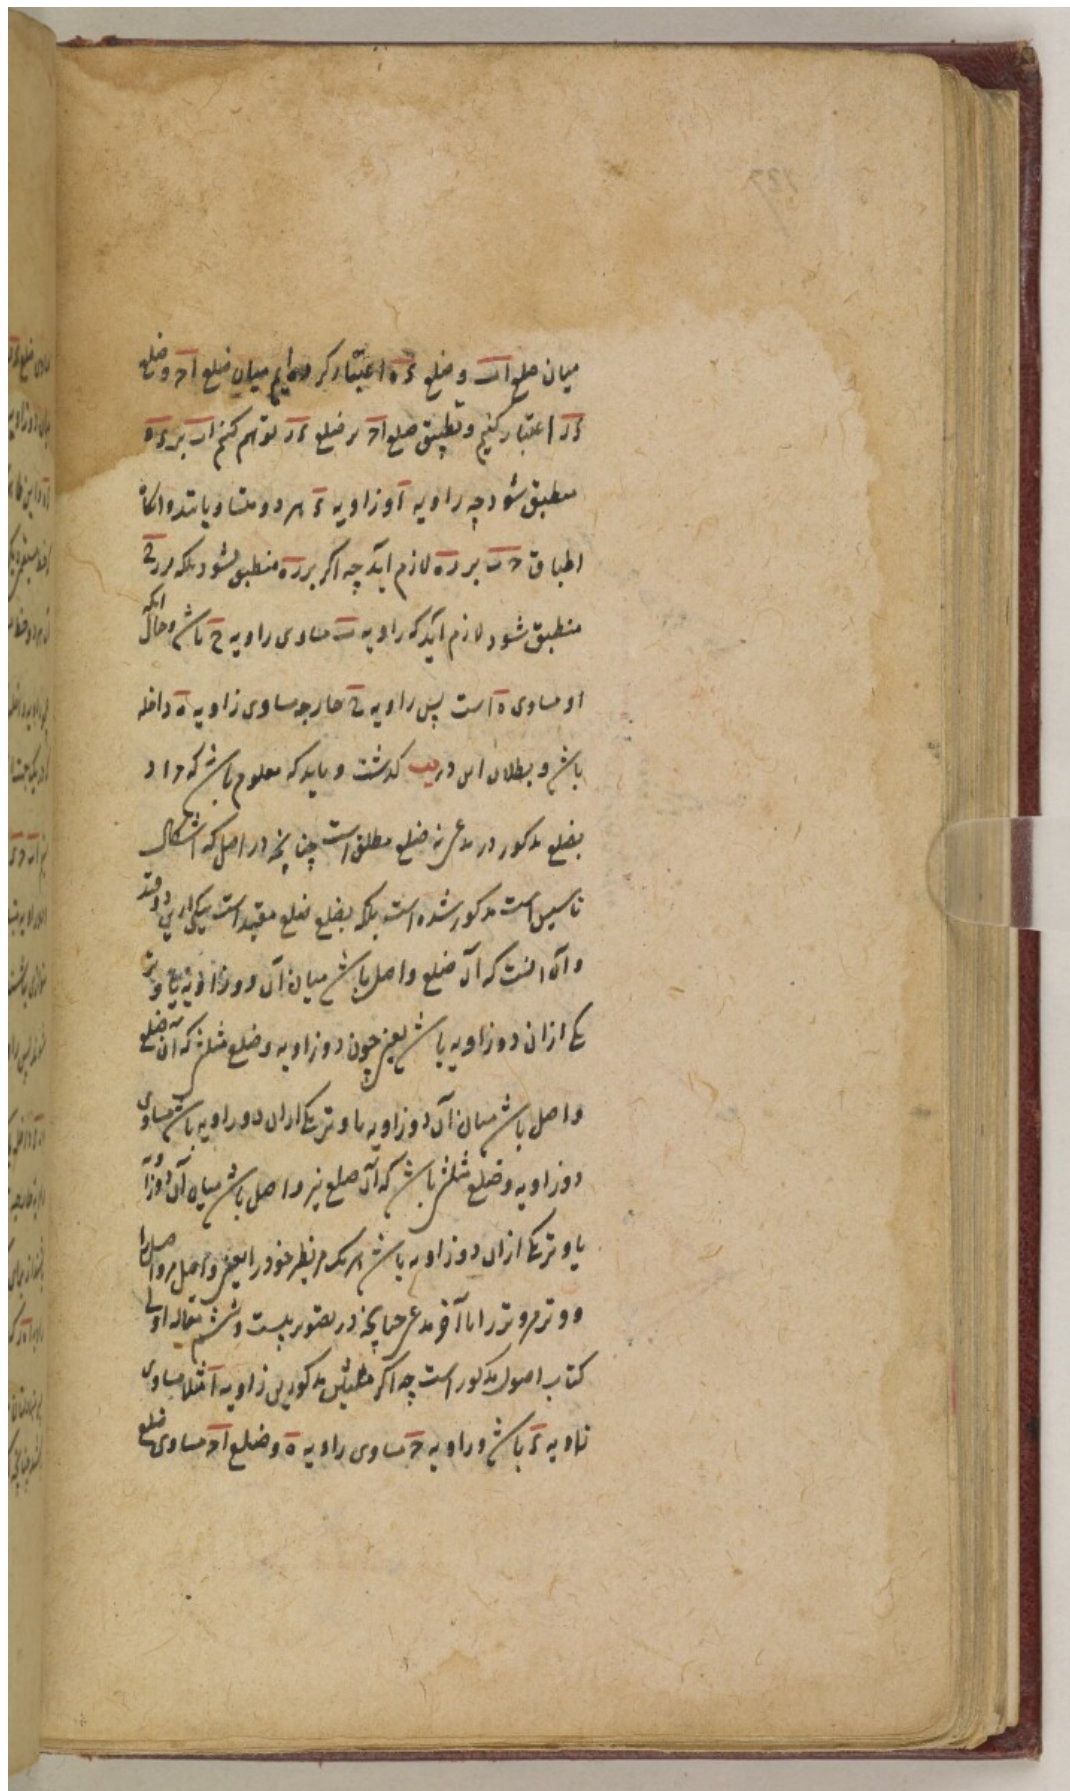 میان ضلع اب و ضلع ءه اعتبار کرده‌ایم میان ضلع اح و ضلع
ءر اعتبار کنیم و تطبیق ضلع اح بر ضلع ءر توهم کنیم اب بر ءه
منطبق شود چه زاویه ا و زاویه ء هر دو متساویانند
انطباق حب بر ره لازم آید چه اکر بر ره منطبق نشود بلکه بر رح
منطبق شود لازم آید که زاویه ب مساوی زاویه ح باشد و حال آنکه
او مساوی ه است پس زاویه ح خارجه مساوی زاویه ه داخله
باشد و بطلان این در یب کذشت و باید که معلوم باشد که مراد
بضلع مذکور در مدعی نه ضلع مطلق است چنانچه در اصل که اشکال
تاسیس است مذکور شده است بلکه بضلع ضلع مقید است بیکی از این دو قید
و آن اینست که آن ضلع واصل باشد میان آن دو زاویه یا وتر
یکی ازان دو زاویه باشد یعنی چون دو زاویه و ضلع مثلثی که آن ضلع
واصل باشد میان آن دو زاویه یا وتر یکی ازان دو زاویه باشد مساوی
دو زاویه و ضلع مثلثی باشد که آن ضلع نیز واصل باشد میان آن دو زاویه
یا وتر یکی ازان دو زاویه باشد هر یک مر نظیر خود را یعنی واصل مر واصل را
و وتر مر وتر را تا آخر مدعی چنانچه در تصویر بیست و ششم مقاله اولی
کتاب اصول مذکور است چه اکر مثلثین مذکورین زاویه ا مثلا مساوی
زاویه ء باشد و زاویه ح مساوی زاویه ه و ضلع اح مساوی ضلع